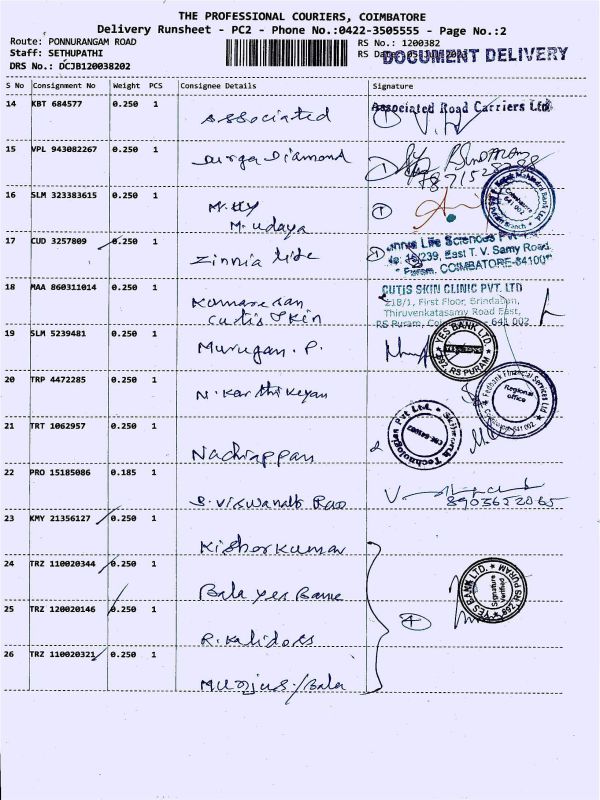 THE PROFESSIONAL COURIERS, COIMBATORE
Delivery Runsheet - PC2 - Phone No.:0422-3505555 - Page No.:2
Route: PONNURANGAM ROAD
RS No.: 1200382
Staff: SETHUPATHI
RS Date:
DOCUMENT DELIVERY
DRS No.: DCJB120038202
S No Consignment No Weight PCS Consignee Details Signature
14 KBT 684577 0.250 1 Associated
Associated Road Carriers Ltd
15 VPL 943082267 0.250 1 Durga Diamond
16 SLM 323383615 0.250 1
M. Udaya
Kotak Mahindra Bank Ltd.
Coimbatore 641 002
17 CUD 3257809 0.250 1 Zinnia life
Life Sciences
239, East T. V. Samy Road,
Puram, COIMBATORE-64100
18 MAA 860311014 0.250 1 Kumaresan
Cutis Skin
CUTIS SKIN CLINIC PVT. LTD
218/1, First Floor, Brindavan,
Thiruvenkatasamy Road East,
RS Puram, 641 002
19 SLM 5239481 0.250 1 Murugan. P.
YES BANK LTD.
RS PURAM
20 TRP 4472285 0.250 1 N. Karthikeyan
Fedbank Financial Services Ltd
Regional office
Coimbatore 641 002
21 TRT 1062957 0.250 1 Nachiappan
Technologies Pvt Ltd.
22 PRO 15185086 0.185 1 S. Viswanath Rao
8903652065
23 KMY 21356127 0.250 1 Kishorkumar
24 TRZ 110020344 0.250 1 Bala Yes Bank
YES BANK LTD.
Signature Verified
RS PURAM
25 TRZ 120020146 0.250 1 R. Kalidoss
4
26 TRZ 110020321 0.250 1